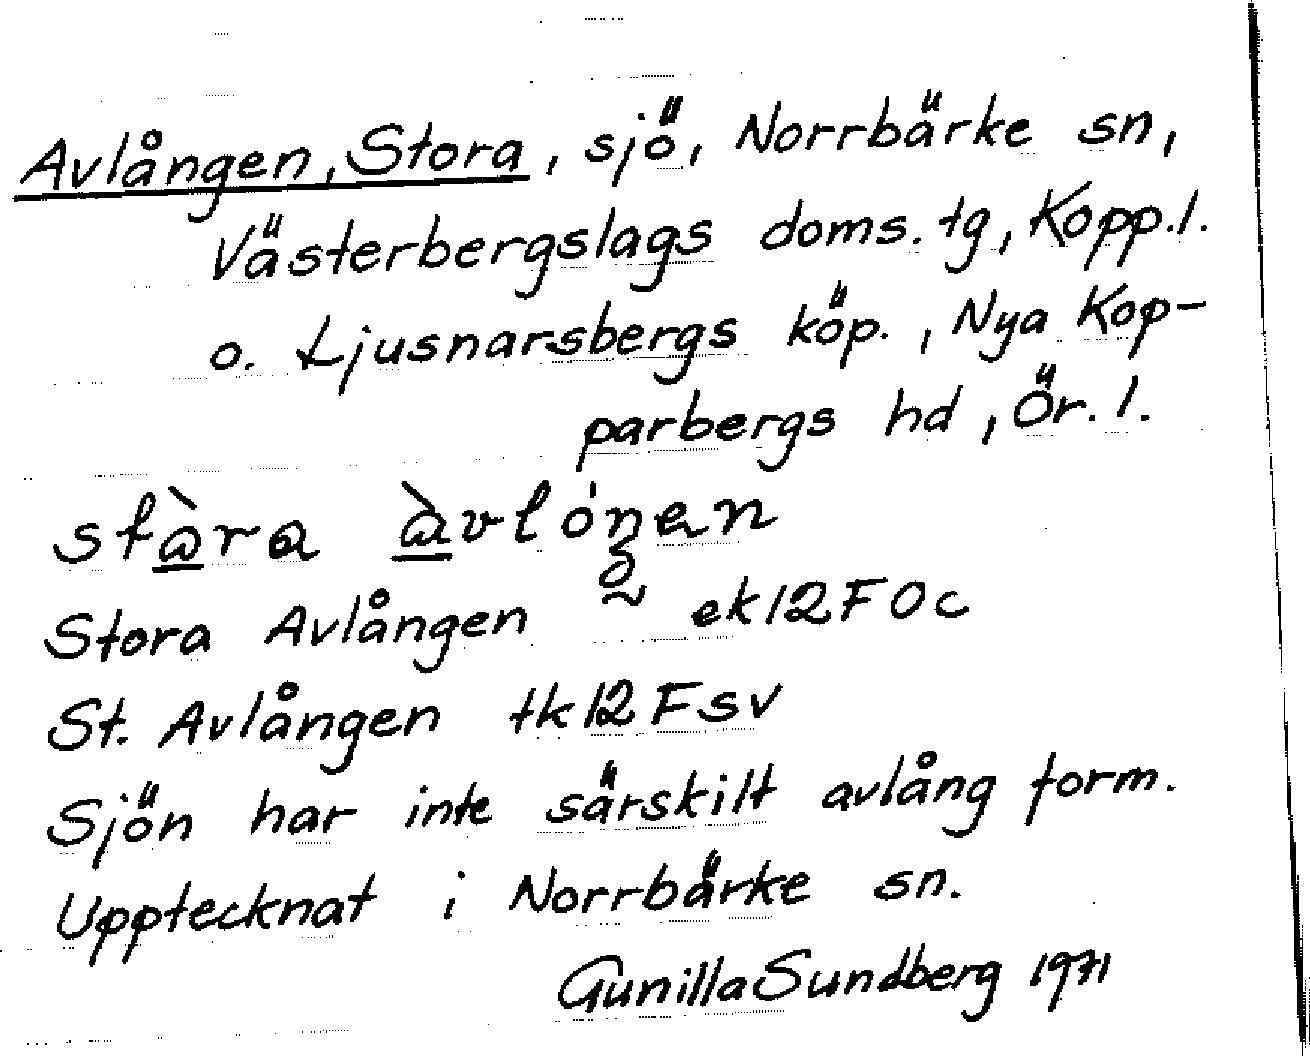 Avlången, Stora, sjö, Norrbärke sn,
Västerbergslags doms. tg, Kopp.l.
o. Ljusnarsbergs köp., Nya Kop-
parbergs hd, Ör. l.
Stora Avlången ek12F0c
St. Avlången tk12Fsv
Sjön har inte särskilt avlång form.
Upptecknat i Norrbärke sn.
Gunilla Sundberg 1971